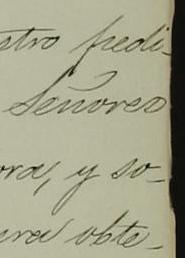 stro pedi-
Señores
ora, y so-
ura obte-